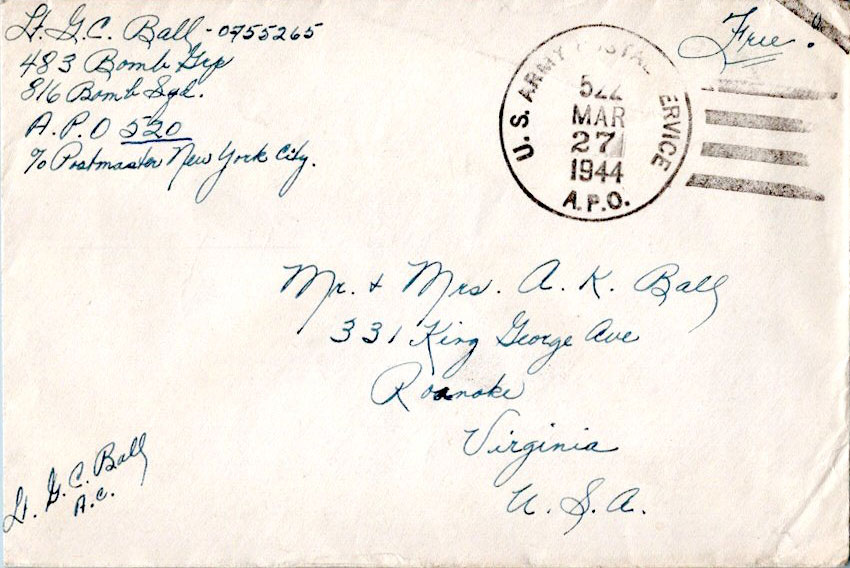 Lt. G.C. Ball - 0755265
483 Bomb Grp
816 Bomb Sqd.
A.P.O 520
℅ Postmaster New York City.
Free.
U.S. ARMY POSTAL SERVICE
522
MAR
27
1944
A.P.O.
Mr. & Mrs. A. K. Ball
331 King George Ave
Roanoke
Virginia
U. S. A.
Lt. G. C. Ball
A.C.